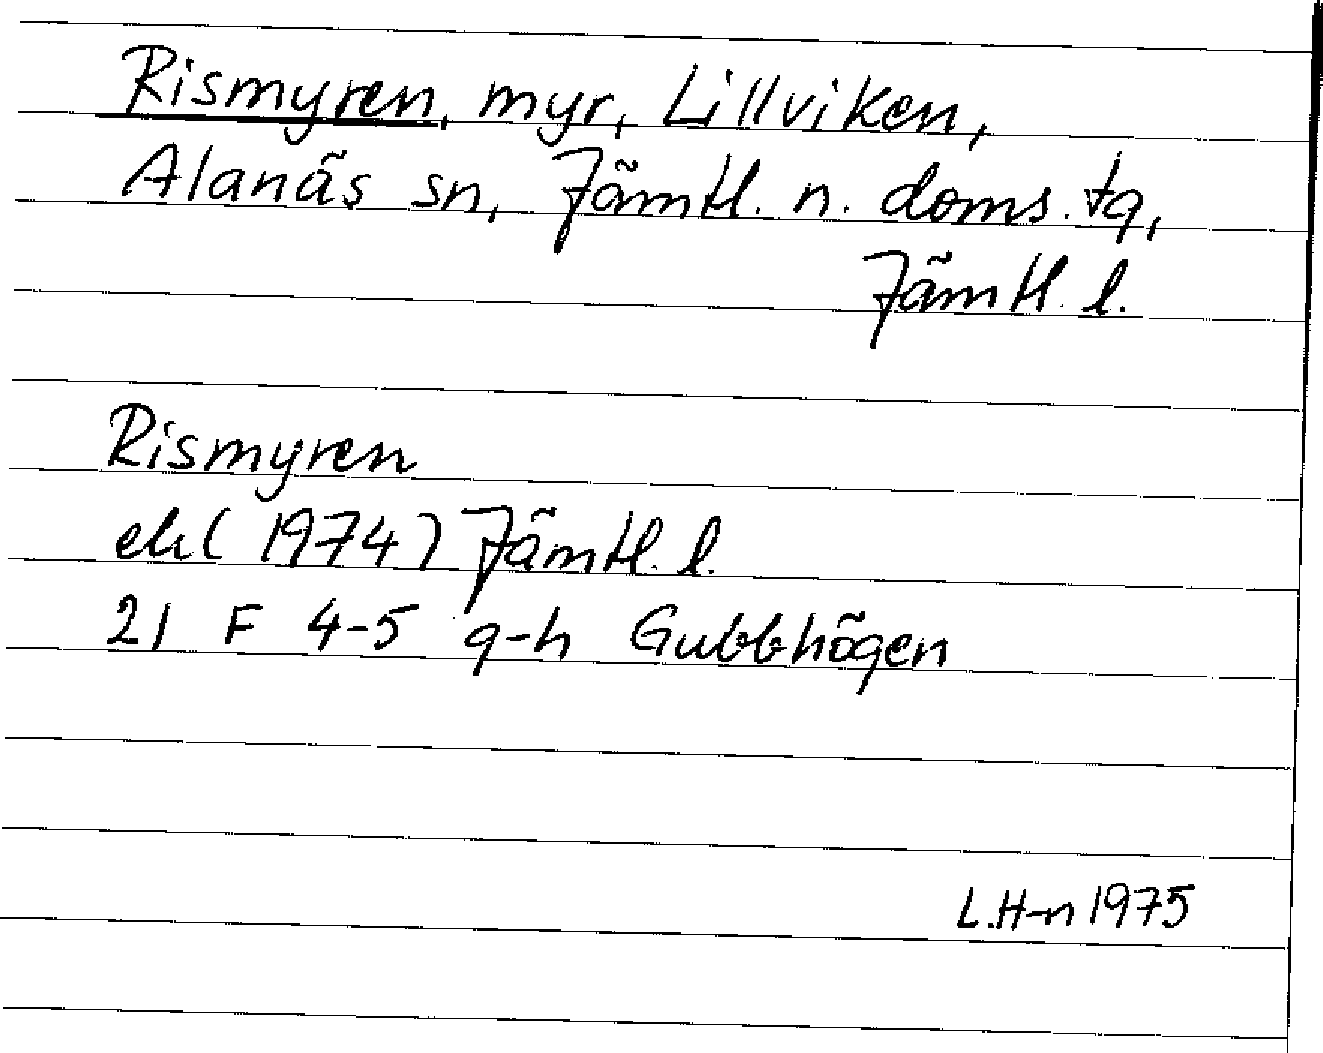 Rismyren, myr, Lillviken,
Alanäs sn, Jämtl. n. doms. tg,
Jämtl. l.
Rismyren
ek (1974) Jämtl. l.
21 F 4-5 g-h Gubbhögen
L.H-n 1975